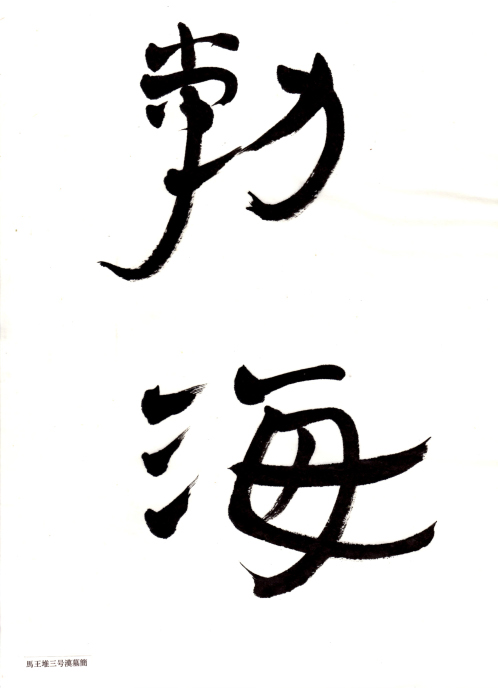 勃
海
馬王堆三号漢墓簡